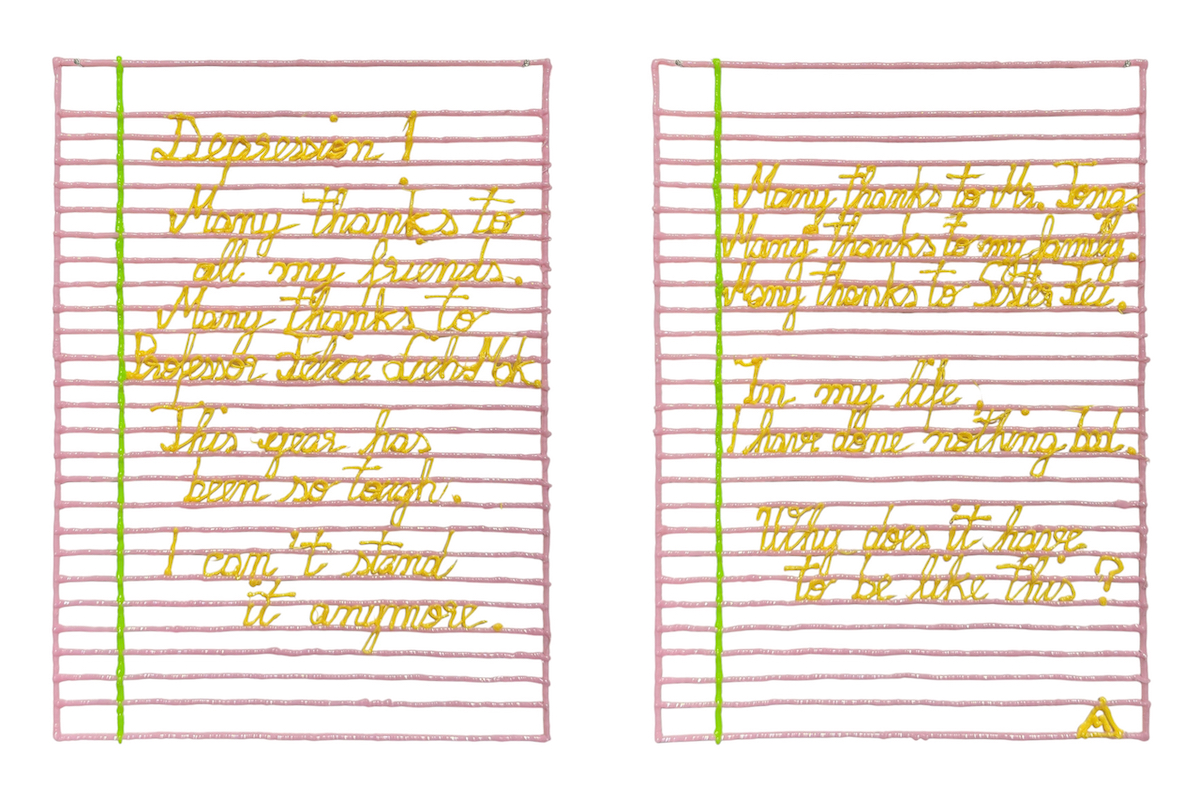 Depression !
Many thanks to
all my friends.
Many thanks to
Professor Felice Lieh-Mak.
This year has
been so tough.
I can't stand
it anymore.
Many thanks to Mr. Tong.
Many thanks to my family.
Many thanks to Sister Fei.
In my life,
I have done nothing bad.
Why does it have
to be like this?